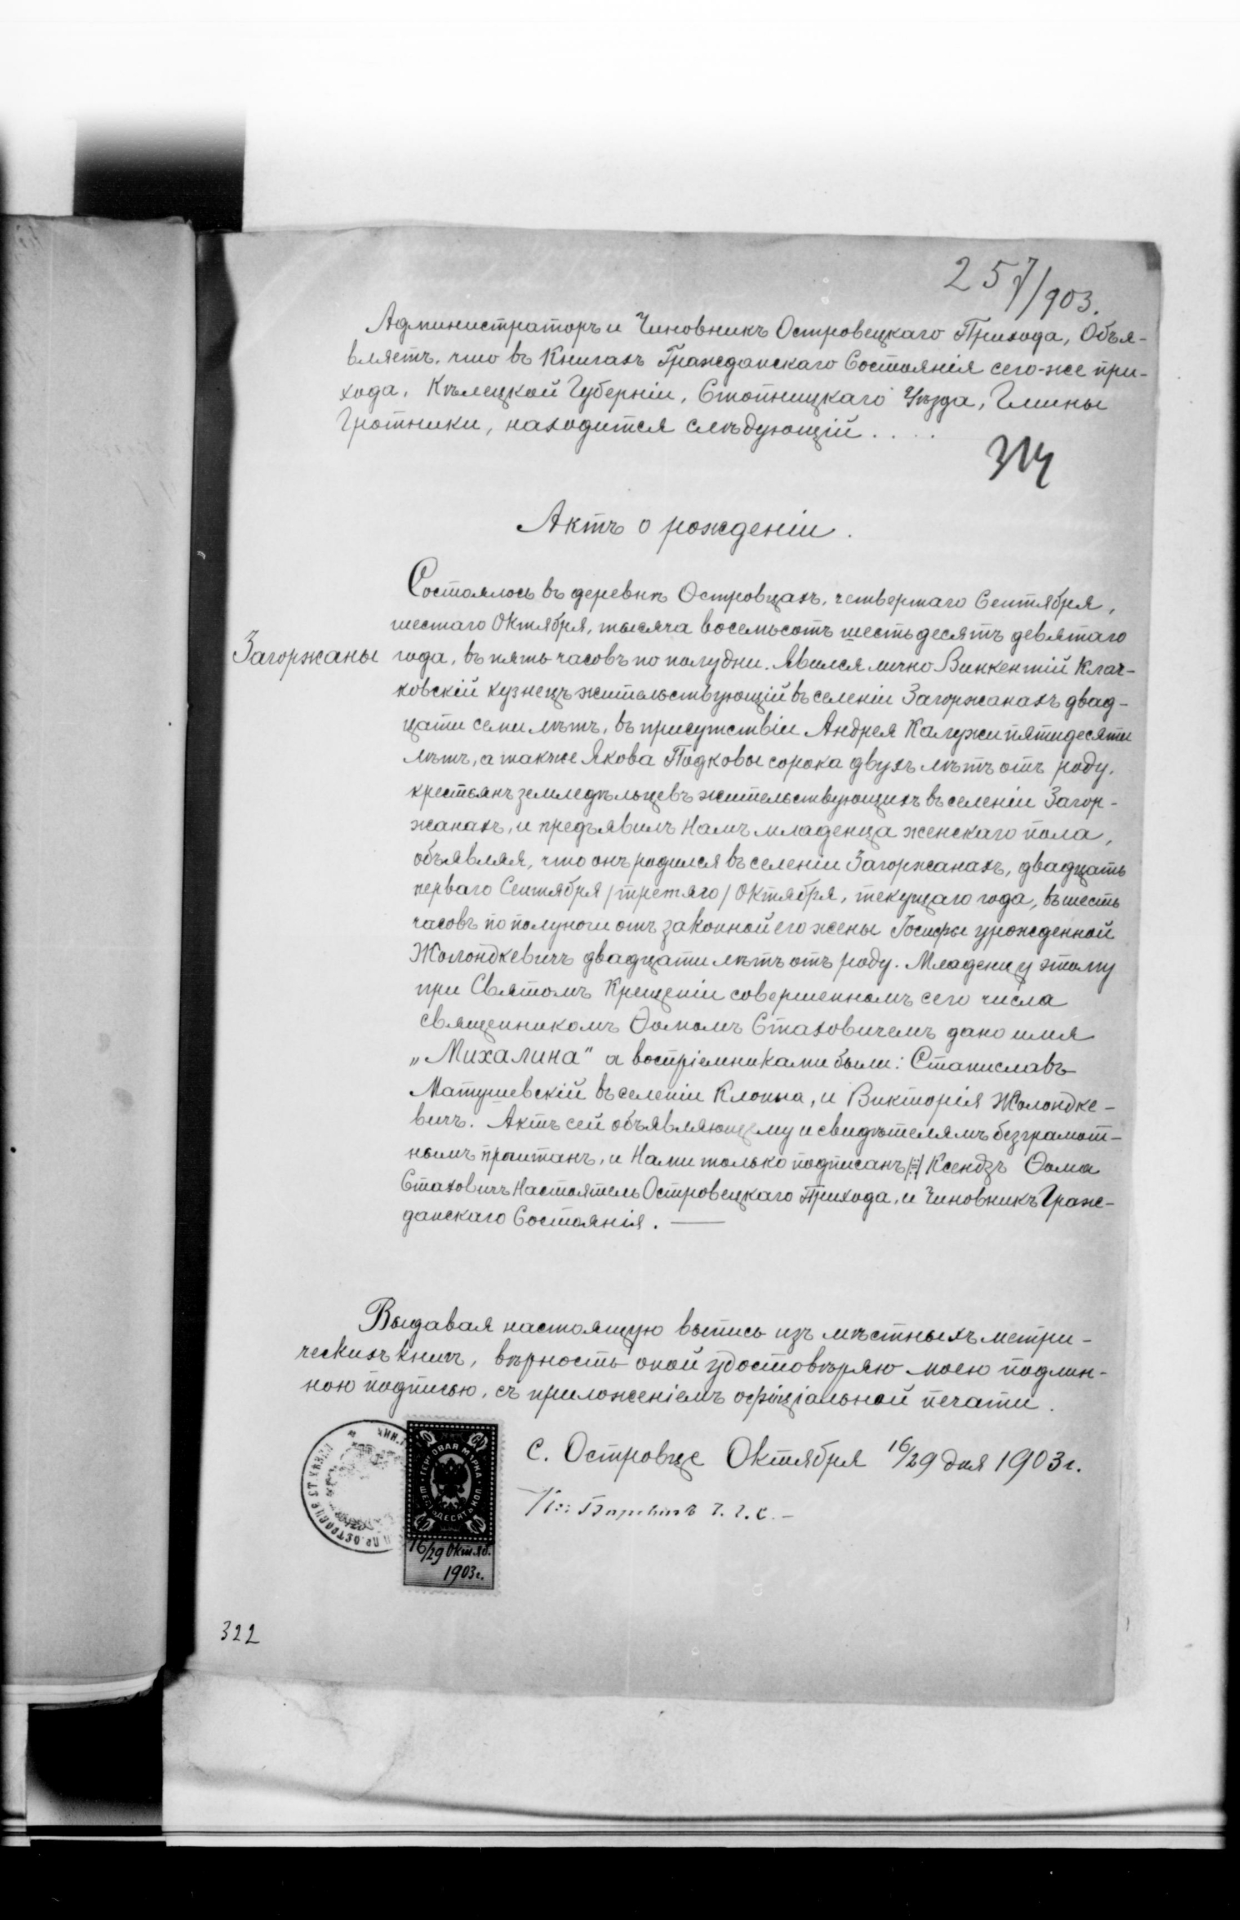 257/903.
Администраторъ и Чиновникъ Островецкаго Прихода, Объя-
вляетъ, что въ Книгахъ Гражданскаго Состоянія сего-же при-
хода, Кѣлецкой Губерніи, Стопницкаго Уѣзда, Гмины
Гротники, находится слѣдующій . . . .
314
Актъ о рожденіи.
Состоялось въ деревнѣ Островцахъ, четвертаго Сентября,
шестаго Октября, тысяча восемьсотъ шестьдесятъ девятаго
Загоржаны
года, въ пять часовъ по полудни. Явился лично Викентій Клач-
ковскій кузнецъ жительствующій въ селеніи Загоржанахъ двад-
цати семи лѣтъ, въ присутствіи Андрея Калужи пятидесяти
лѣтъ, а также Якова Подковы сорока двухъ лѣтъ отъ роду.
крестьянъ земледѣльцевъ жительствующихъ въ селеніи Загор-
жанахъ, и предъявилъ Намъ младенца женскаго пола,
объявляя, что онъ родился въ селеніи Загоржанахъ, двадцать
перваго Сентября /третяго/ Октября, текущаго года, въ шесть
часовъ по полуночи отъ законной его жены Іосифы урожденной
Жолондкевичъ двадцати лѣтъ отъ роду. Младенцу этому
при Святомъ Крещеніи совершенномъ сего числа
священникомъ Ѳомомъ Стаховичемъ дано имя
„Михалина" а воспріемниками были: Станиславъ
Матушевскій въ селеніи Клопы, и Викторія Жолондке-
вичъ. Актъ сей объявляющему и свидѣтелямъ безграмот-
нымъ прочитанъ, и Нами только подписанъ /=/ Ксендзъ Ѳома
Стаховичъ Настоятель Островецкаго Прихода, и Чиновникъ Граж-
данскаго Состоянія. —
Выдавая настоящую выпись изъ мѣстныхъ метри-
ческихъ книгъ, вѣрность оной удостовѣряю моею подлин-
ною подписью, съ приложеніемъ оффиціальной печати.
с. Островце Октября 16/29 дня 1903 г.
ГЕРБОВАЯ МАРКА
ШЕСТЬДЕСЯТЪ КОП.
16/29 Октяб.
1903 г.
322